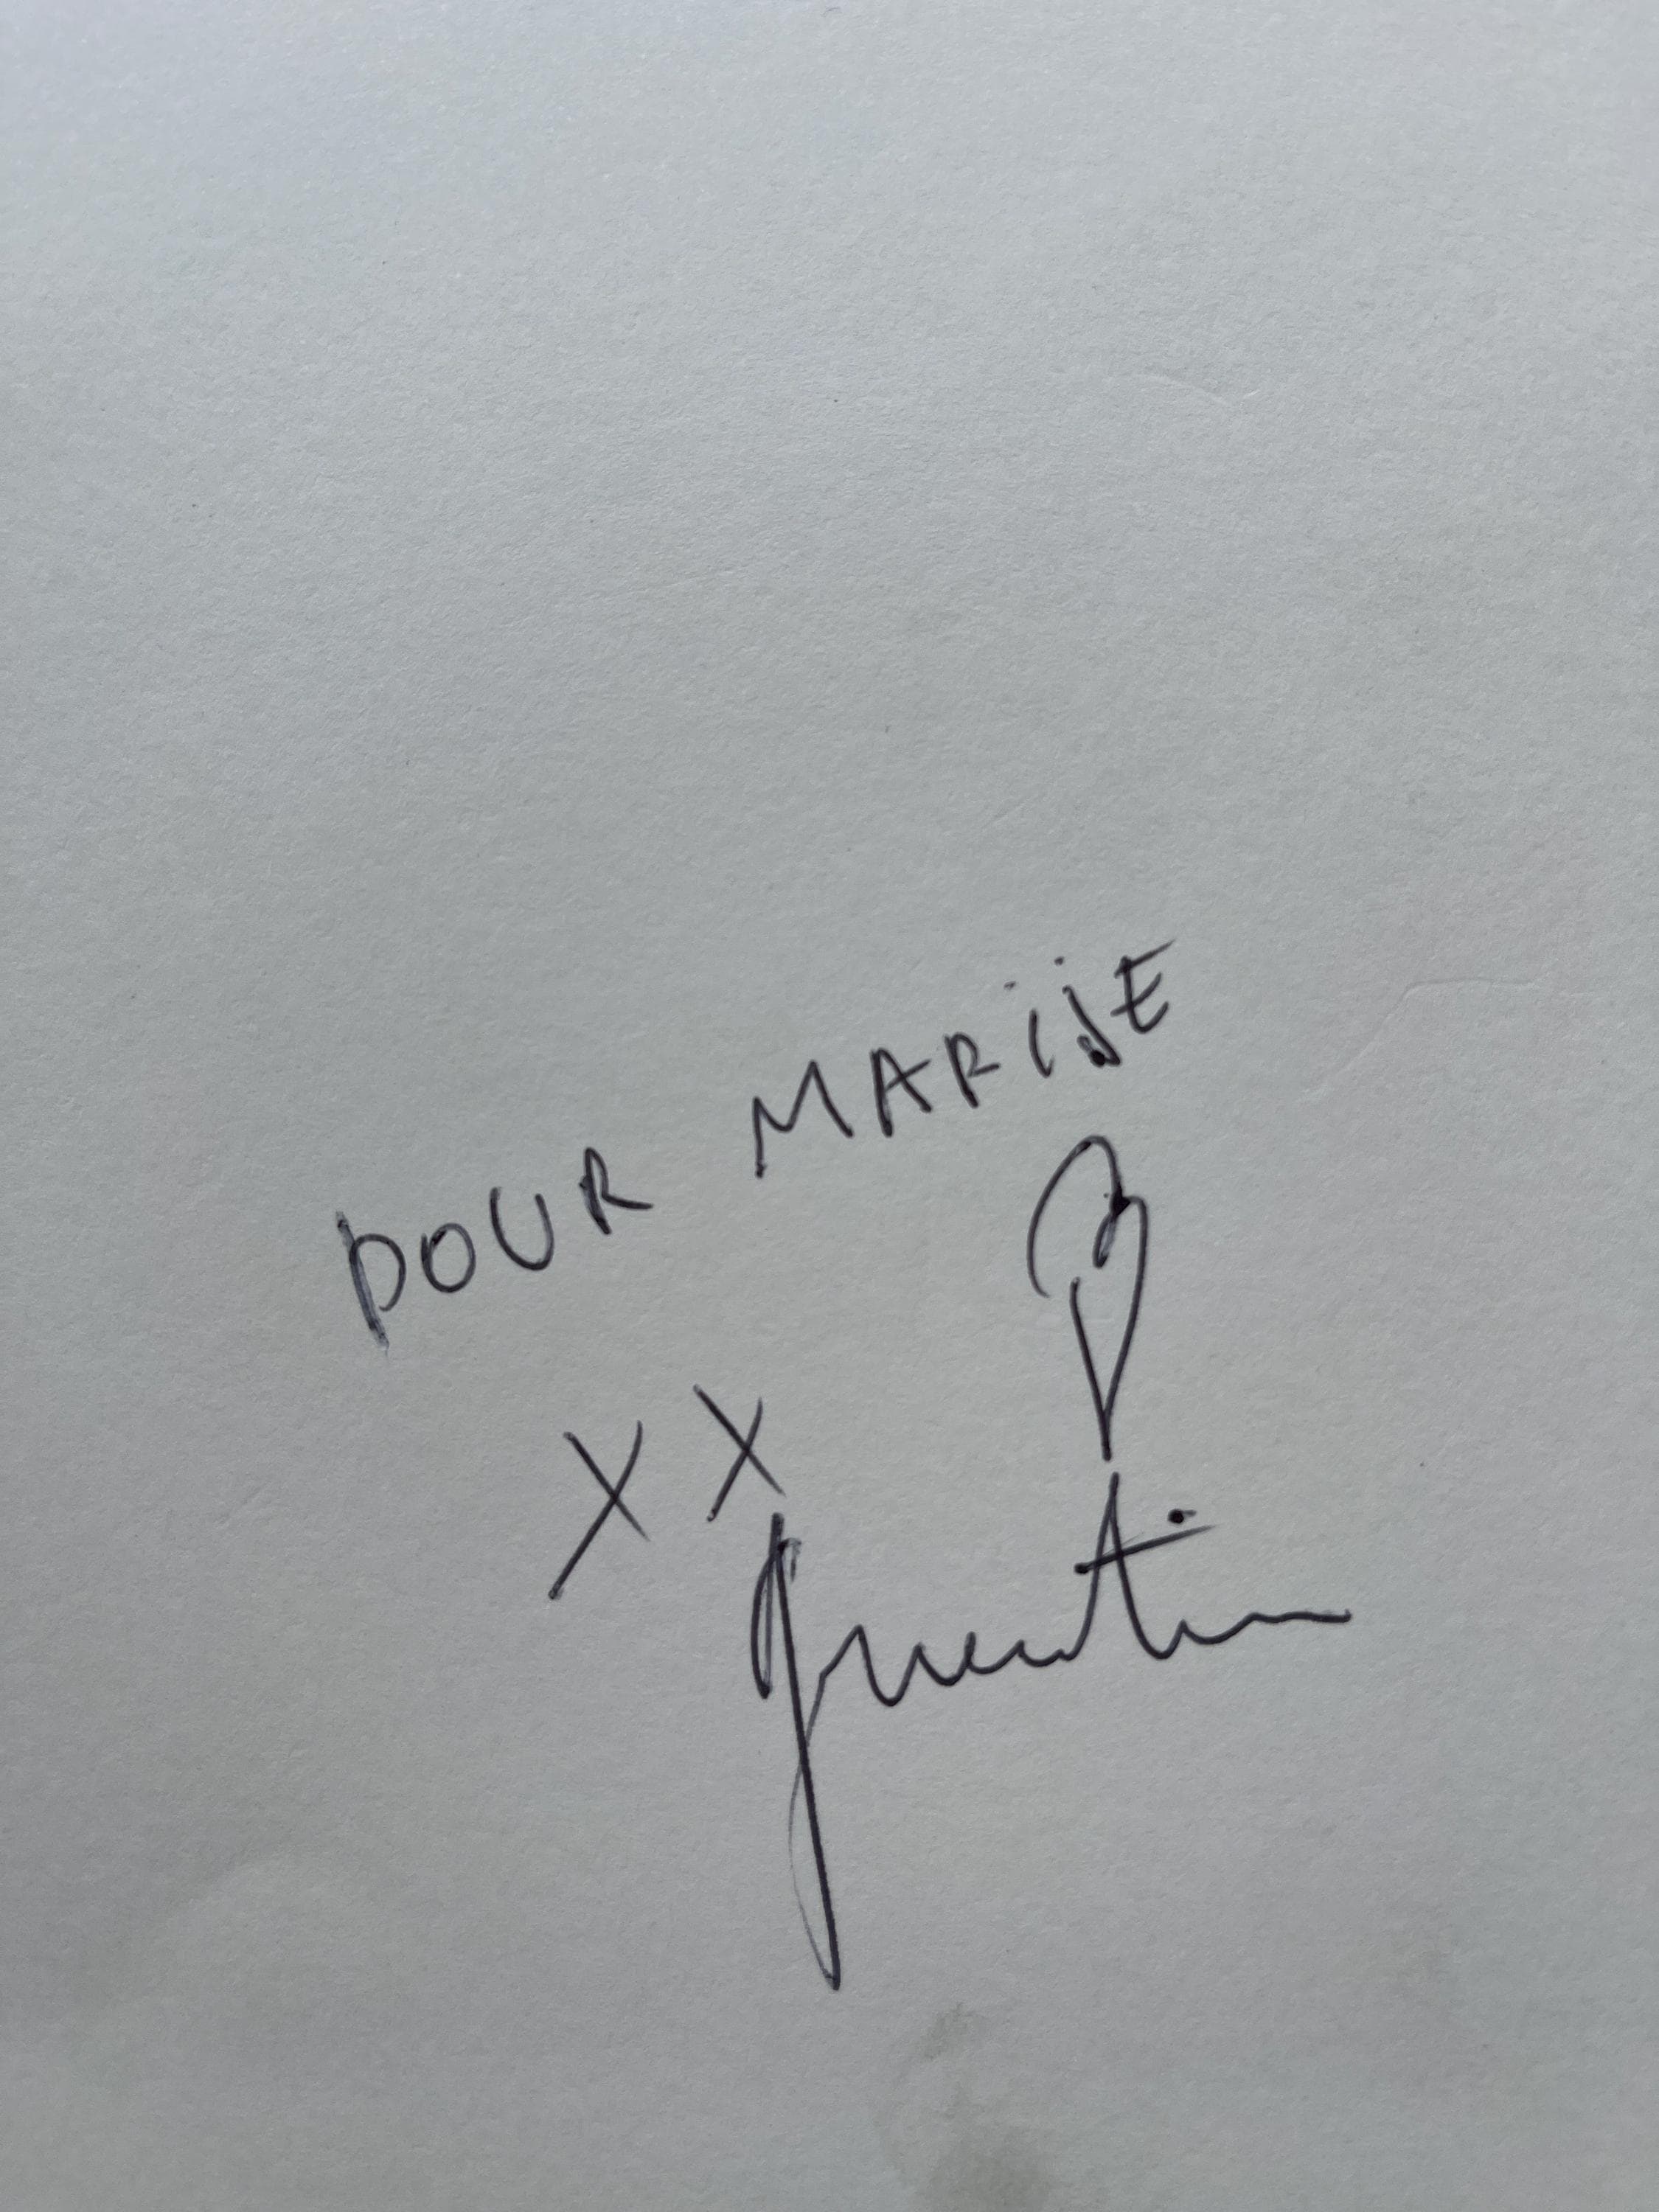 POUR MARIJE
XX
Quentin